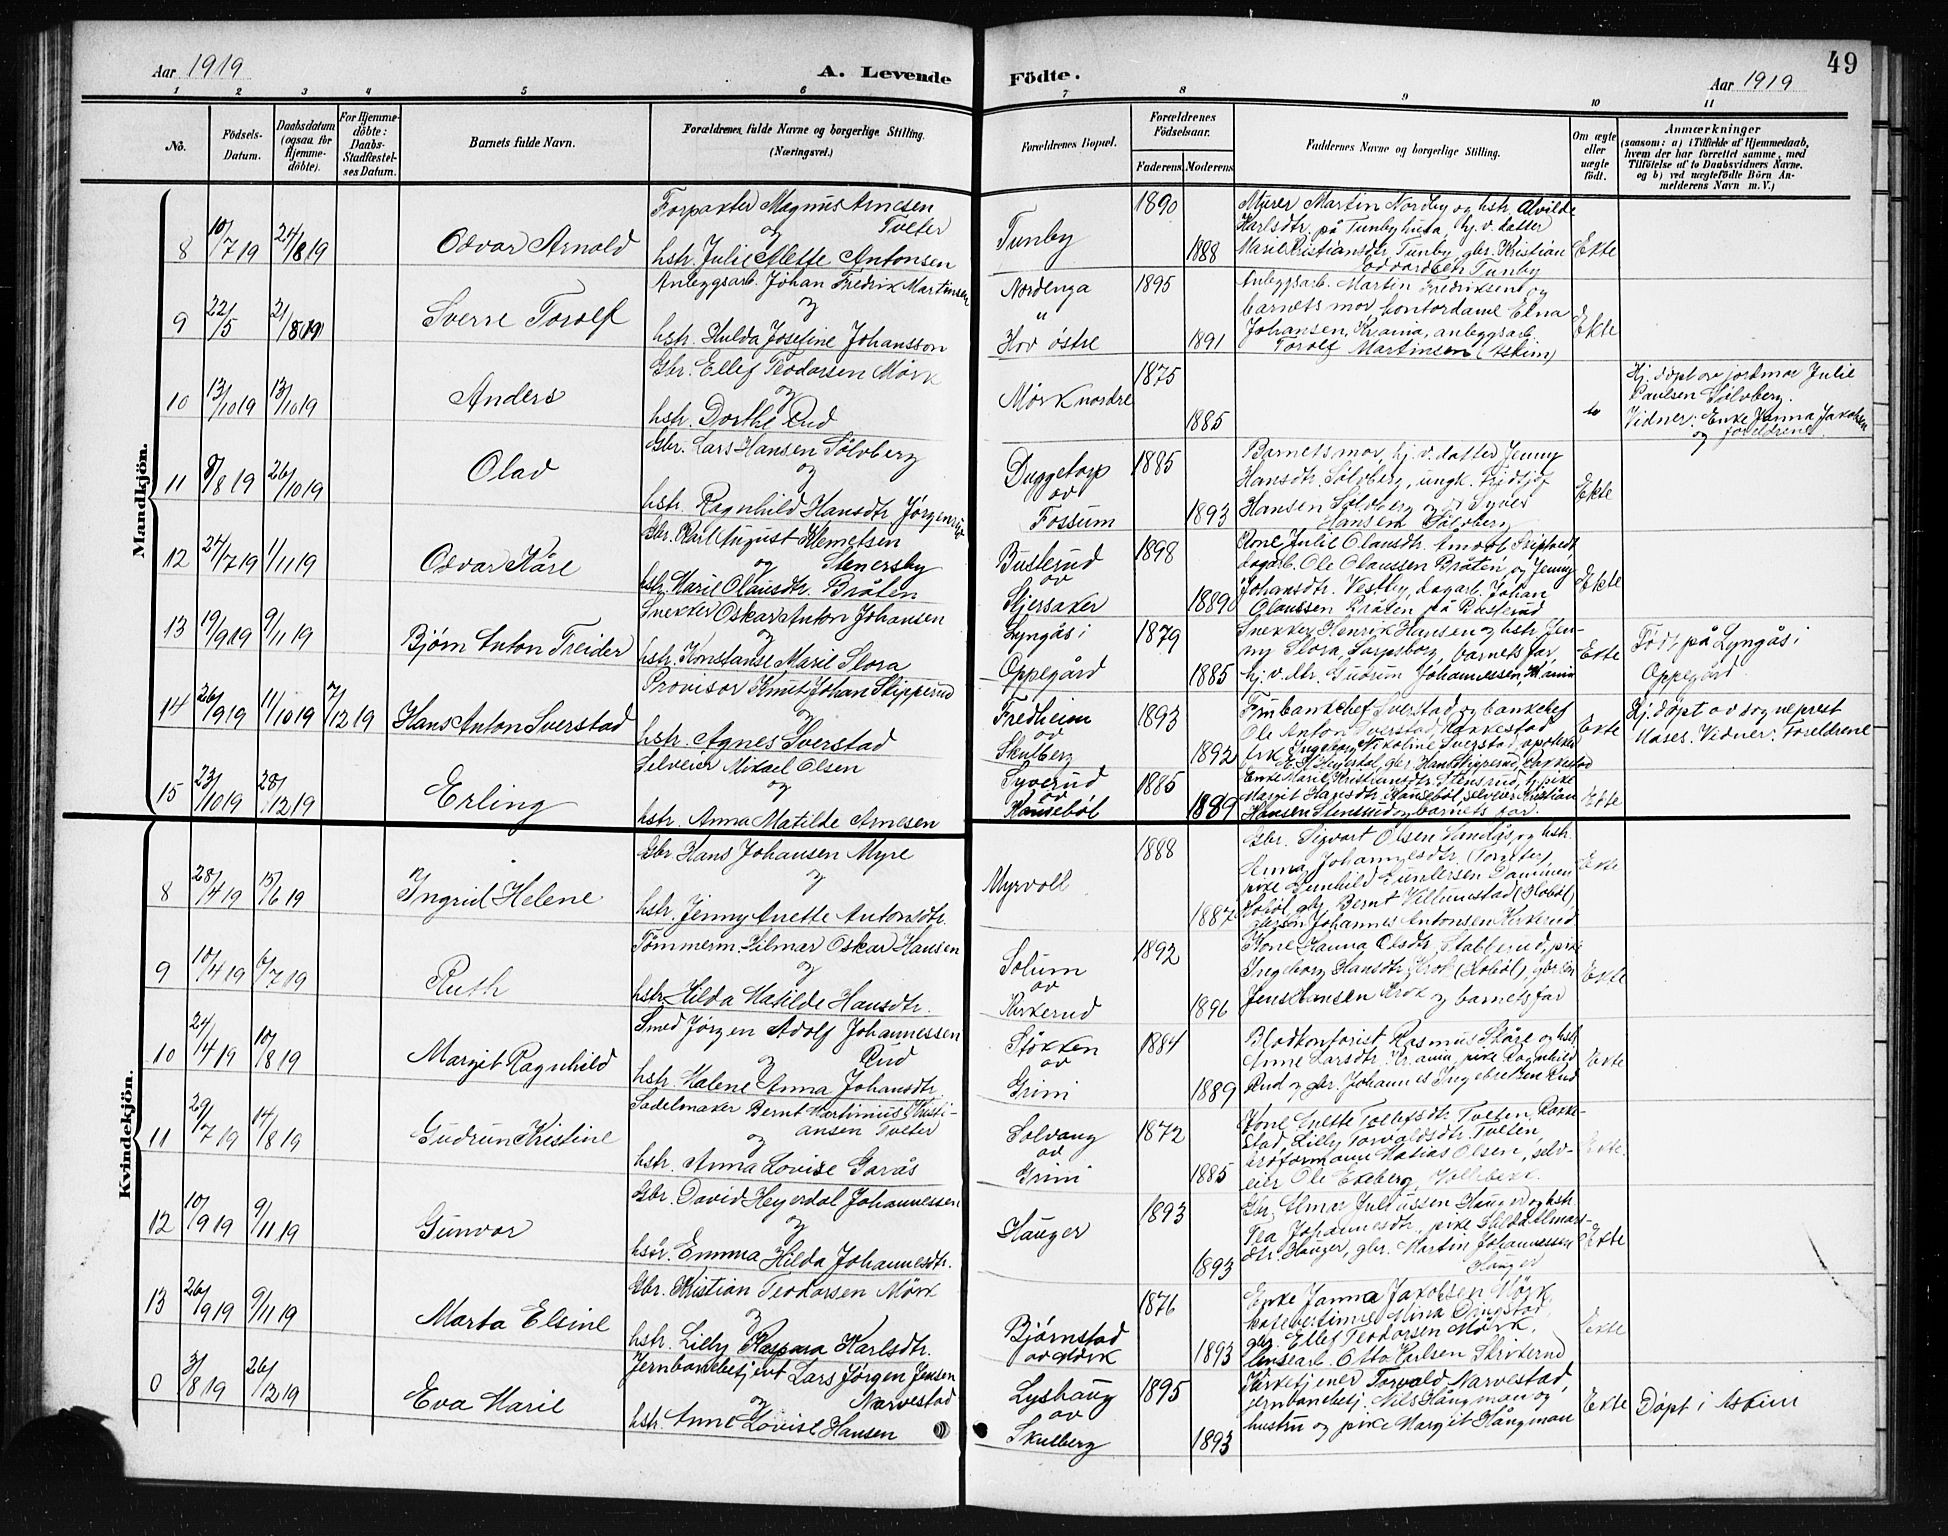 Aar 1919
A. Levende
Födte.
Aar 1919
49
1 2 3 4 5 6 7 8 9 10 11
No.
Födsels-
Datum.
Daabsdatum
(ogsaa for
Hjemme-
döbte).
For Hjemme-
döbte:
Daabs-
Stadfæstel-
ses Datum.
Barnets fulde Navn.
Forældrenes fulde Navne og borgerlige Stilling.
(Næringsvei.)
Forældrenes Bopæl.
Forældrenes
Födselsaar.
Faderens Moderens
Faddernes Navne og borgerlige Stilling.
Om ægte
eller
uægte
födt.
Anmærkninger
(saasom: a) i Tilfælde af Hjemmedaab,
hvem der har forrettet samme, med
Tilföielse af to Daabsvidners Navne.
og b) ved uægtefödte Börn An-
melderens Navn m. V.)
Mandkjön.
8 10/7 19 24/8 19 Odvar Arnold
Forpakter Magnus Arnesen
Tveter
og
hstr. Julie Mette Antonsen
Tunby
1890
1888
Murer Martin Nordby og hstr. Alvilde
Karlsdtr. på Tunbyhuta, hj. v. datter
Marie Kristiansdtr. Tunby, gbr. Kristian
Edvardsen Tunby
Ekte
9 22/5 21/8 19 Sverre Torolf
Anleggsarb. Johan Fredrik Martinsen
og
hstr. Hulda Josefine Johansson
Nordenga
"
Hov östre
1895
1891
Anleggsarb. Martin Fredriksen og
barnets mor, kontordame Edna
Johansen, Krania, anleggsarb.
Torolf Martinsen (Askim)
Ekte
10 13/10 19 13/10 19 Anders
Gbr. Ellef Teodorsen Mørk
og
hstr. Dorthe Rud
Mørk nordre
1875
1885
Hj. døpt av jordmor Julie
Paulsen Sølvberg.
Vidner: Enke Janna Jakobsen
og foreldrene.
11 8/8 19 26/10 19 Olav
Gbr. Lars Hansen Sølvberg
og
hstr. Ragnhild Hansdtr. Jörgensrud
Duggetorp
av
Fossum
1885
1893
Barnets mor, hj. v. datter Jenny
Hansdtr. Sølvberg, ungk. Fridtjof
Hansen Sølvberg og Syver
Hansen Sølvberg
Ekte
12 24/7 19 1/11 19 Odvar Kåre
Gbr. Karl August Klemetsen
og Stenersby
hstr. Marie Olausdtr. Bråten
Busterud
av
Skjersaker
1898
1889
Kone Julie Olausdtr.
dagarb. Ole Olaussen Bråten og Jenny
Johansdtr. Vestby, dagarb. Johan
Olaussen Bråten på Busterud
Ekte
13 19/9 19 9/11 19 Bjørn Anton Freider
Snekker Oskar Anton Johansen
og
hstr. Konstanse Marie Slora
Lyngås i
Oppegård
1879
1885
Snekker Henrik Hansen og hstr. Jen-
ny Slora, Sarpsborg, barnets far,
hj. v. dtr. Gudrun Johannessen, Krania
Ekte
Født på Lyngås i
Oppegård
14 26/9 19 11/10 19 7/12 19 Hans Anton Sverstad
Provisor Knut Johan Skipperud
og
hstr. Agnes Sverstad
Fredheim
av
Skulberg
1893
1892
Fru bankchef Sverstad og bankchef
Ole Anton Sverstad, Rakkestad
frk. Ingeborg Nikoline Sverstad, apoteker
E. M. Heyerdal, gbr. Hans Skipperud, Rakkestad
Ekte
Hj. døpt av sogneprest
Moses. Vidner: Foreldrene
15 23/10 19 28/12 19 Erling
Selveier Mikael Olsen
og
hstr. Anna Matilde Arnesen
Syverud
av
Haudebøl
1885
1889
Enke Marie Kristiansdtr. Stensrud, hj. pike
Margit Hansdtr. Haudebøl, selveier Kristian
Hansen Stensrud og barnets far.
Ekte
Kvindekjön.
8 28/4 19 15/6 19 Ingrid Helene
Gbr. Hans Johansen Myre
og
hstr. Jenny Anette Antonsdtr.
Myrvoll
1888
1887
Gbr. Sigvart Olsen Sandås, og hstr.
Anna Johannesdtr. (Tomter),
pike Gunhild Gundersen Dammen
Hobøl, gbr. Bernt Villumstad (Hobøl),
Johannes Antonsen Kirkerud
Ekte
9 10/4 19 6/7 19 Ruth
Tømmerm. Hilmar Oskar Hansen
og
hstr. Hilda Matilde Hansdtr.
Solum
av
Kirkerud
1892
1896
Kone Hanna Olsdtr. Stablerud, pike
Ingeborg Hansdtr. Krok (Hobøl),
Jens Hansen Krok og barnets far
Ekte
10 24/4 19 10/8 19 Margit Ragnhild
Smed Jørgen Adolf Johannessen
og Rud
hstr. Malene Anna Johansdtr.
Støkken
av
Grimi
1884
1889
Rasmus Skåre og hstr.
Anne Larsdtr. Krania, pike Ragnhild
Rud og gbr. Johannes Ingebretsen Rud
Ekte
11 29/7 19 14/8 19 Gudrun Kristine
Sadelmaker Bernt Martinius Kristi-
ansen Tveter
og
hstr. Anna Lovise Garås
Solvang
av
Grimi
1872
1885
Kone Anette Tollefsdtr. Tveten, Rakke-
stad, Lilly Torvaldsdtr. Tveten,
Matias Olsen, selv-
eier Ole Ekeberg,
Ekte
12 10/9 19 9/11 19 Gunvor
Gbr. David Heyerdal Johannessen
og
hstr. Emma Hilda Johannesdtr.
Hauger
1893
1893
Gbr. Elmer Juliussen Hauger og hstr.
Tea Johannesdtr., pike Hilda Elmers-
dtr. Hauger, gbr. Martin Johannessen
Hauger
Ekte
13 26/9 19 9/11 19 Marta Elsine
Gbr. Kristian Teodorsen Mørk
og
hstr. Lilly Kaspara Karlsdtr.
Bjørnstad
av Mørk
1876
1893
Enke Janna Jakobsen Mørk,
Mina Ringstad,
gbr. Ellef Teodorsen Mørk,
Otto Karlsen Skikerud
Ekte
0 3/8 19 26/12 19 Eva Marie
Jernbanebetjent Lars Jørgen Jensen
og Narvestad
hstr. Anne Lovise Hansen
Lyshaug
av
Skulberg
1895
1893
Kirketjener Torvald Narvestad,
jernbanebetj. Nils Hångman og
hustru og pike Margit Hångman
Ekte
Døpt i Askim